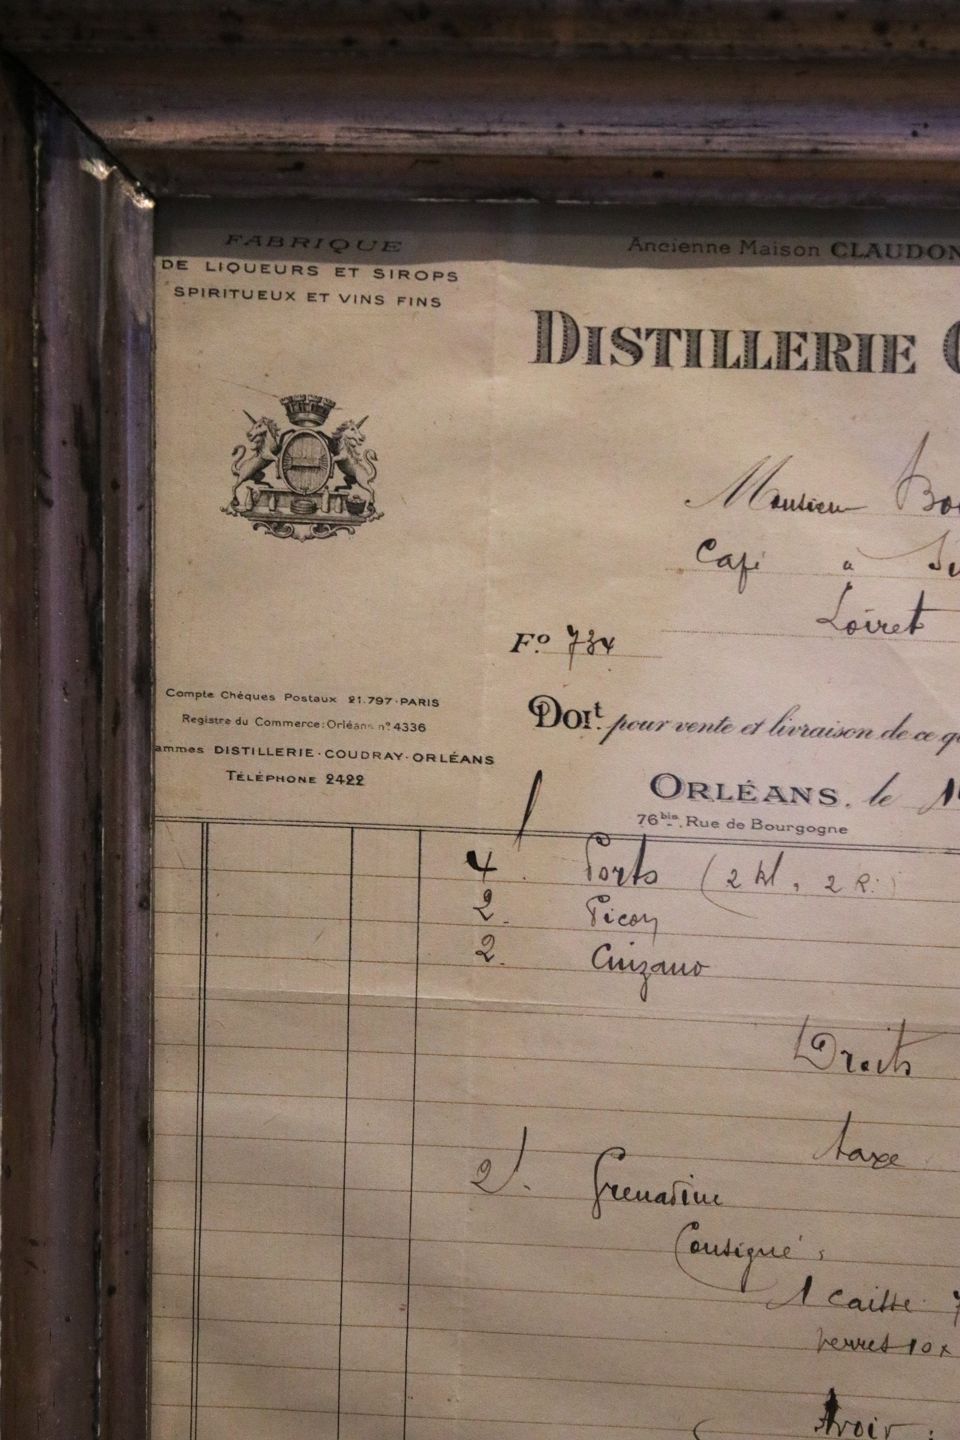 FABRIQUE
DE LIQUEURS ET SIROPS
SPIRITUEUX ET VINS FINS
Ancienne Maison CLAUDON
DISTILLERIE
Monsieur
Café à
Loiret
Fo 734
Compte Chèques Postaux 21.797-PARIS
Registre du Commerce: Orléans nº 4336
ammes DISTILLERIE-COUDRAY-ORLÉANS
TÉLÉPHONE 2422
DOIt pour vente et livraison de ce
ORLÉANS, le
76 bis, Rue de Bourgogne
4 Porto (2 kl, 2 R.)
2. Picon
2. Cinzano
Droits
taxe
2 l. Grenadine
Consigné:
1 caisse
verres 10 x
Avoir: